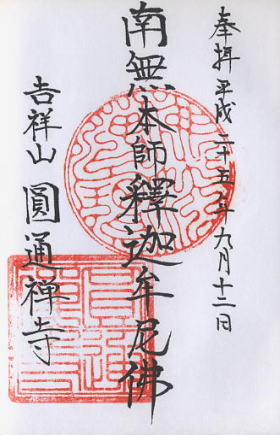 奉拝 平成二十五年九月十二日
南無本師釋迦牟尼佛
吉祥山 圓通禅寺